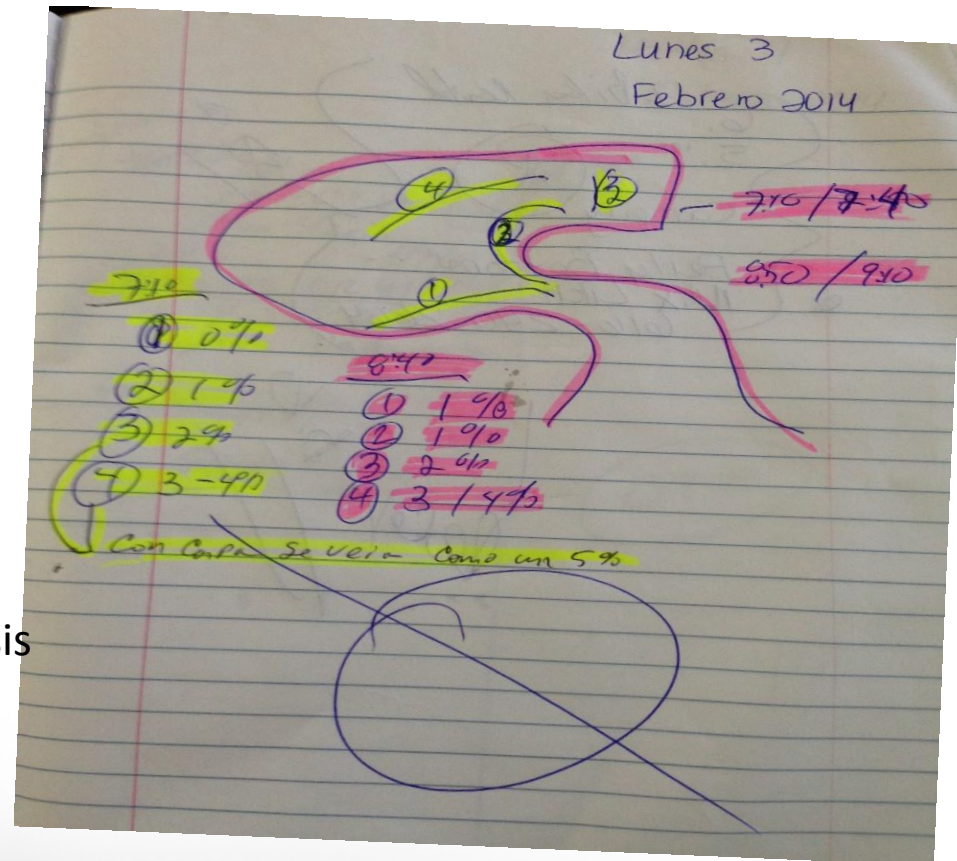 Lunes 3
Febrero 2014
4
3
2
1
7:10 / 7:40
8:50 / 9:10
7:10
1 0%
2 1%
3 2%
4 3-4%
8:40
1 1%
2 1%
3 2%
4 3/4%
Con se veia como un 5%
is